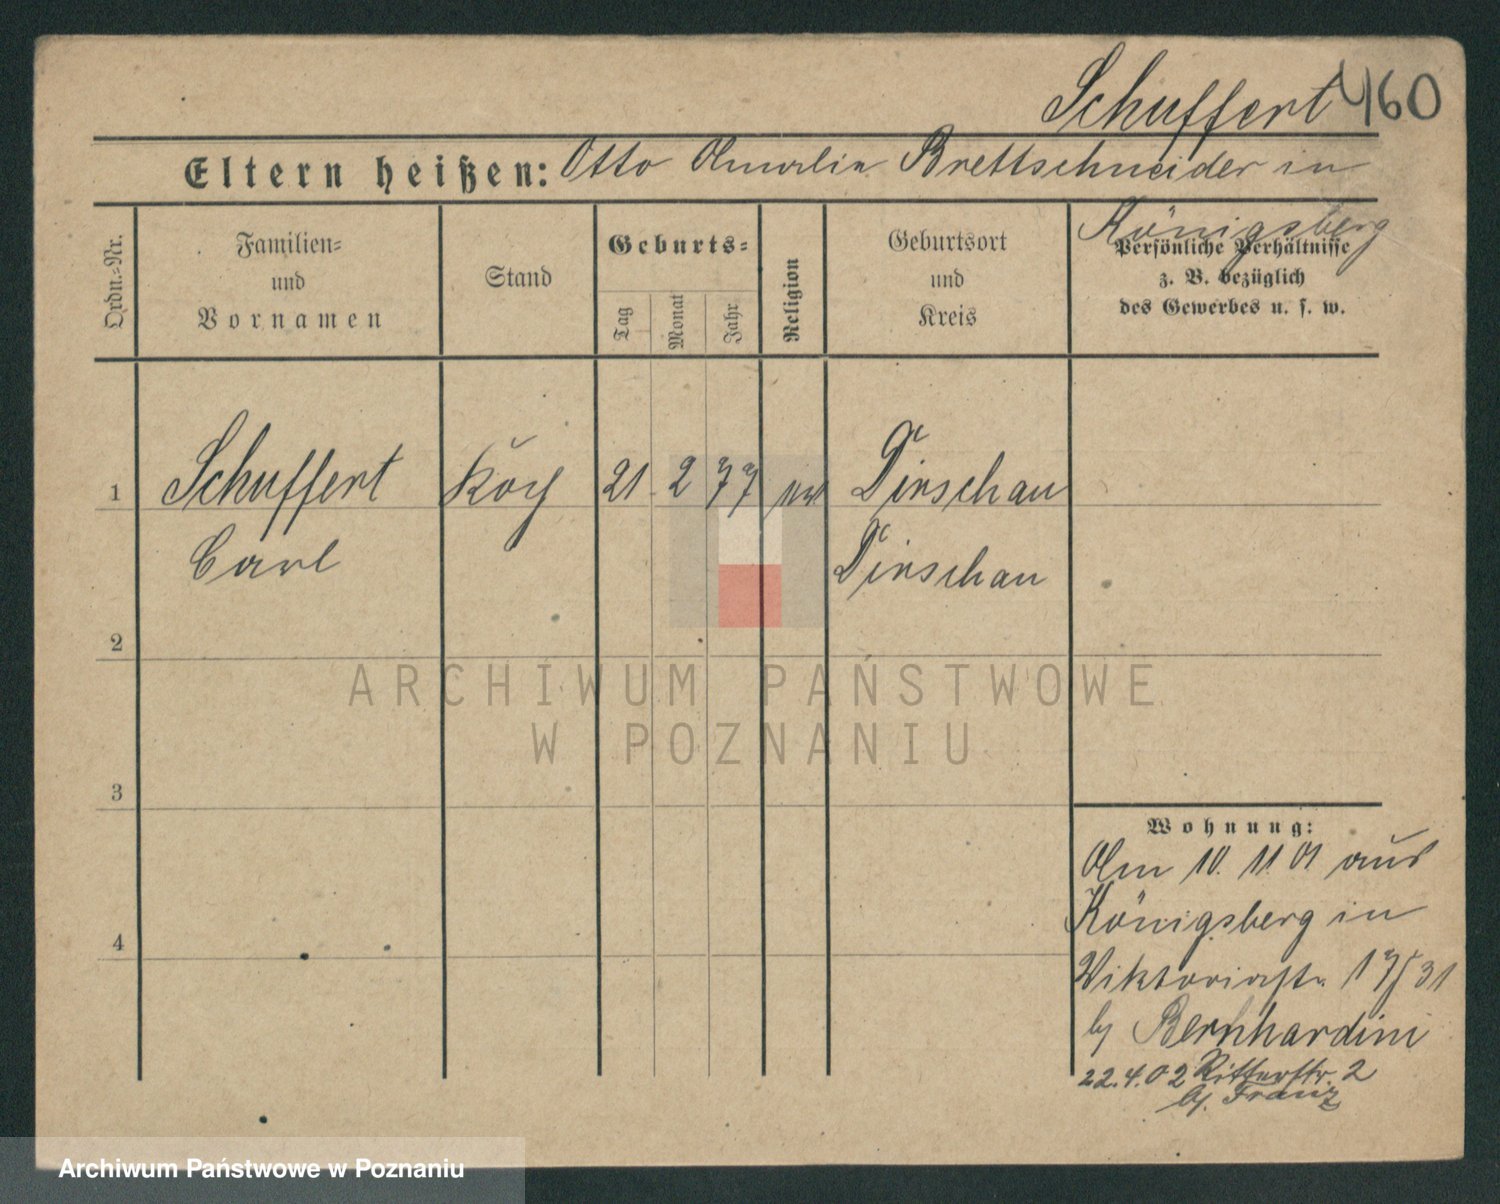 Schuffert 460
Eltern heißen: Otto Amalie Brettschneider in
Königsberg
Ordn.-Nr.
Familien-
und
Vornamen
Stand
Geburts-
Tag
Monat
Jahr
Religion
Geburtsort
und
Kreis
Persönliche Verhältnisse
z. B. bezüglich
des Gewerbes u. s. w.
1 Schuffert Koch 21 2 77 Dirschau
Carl Dirschau
2
3
4
ARCHIWUM PAŃSTWOWE
W POZNANIU
Wohnung:
Am 10. 11. 01 aus
Königsberg in
Viktoriastr. 17/31
bj Bernhardini
22.4.02 Ritterstr. 2
bj. Franz
Archiwum Państwowe w Poznaniu